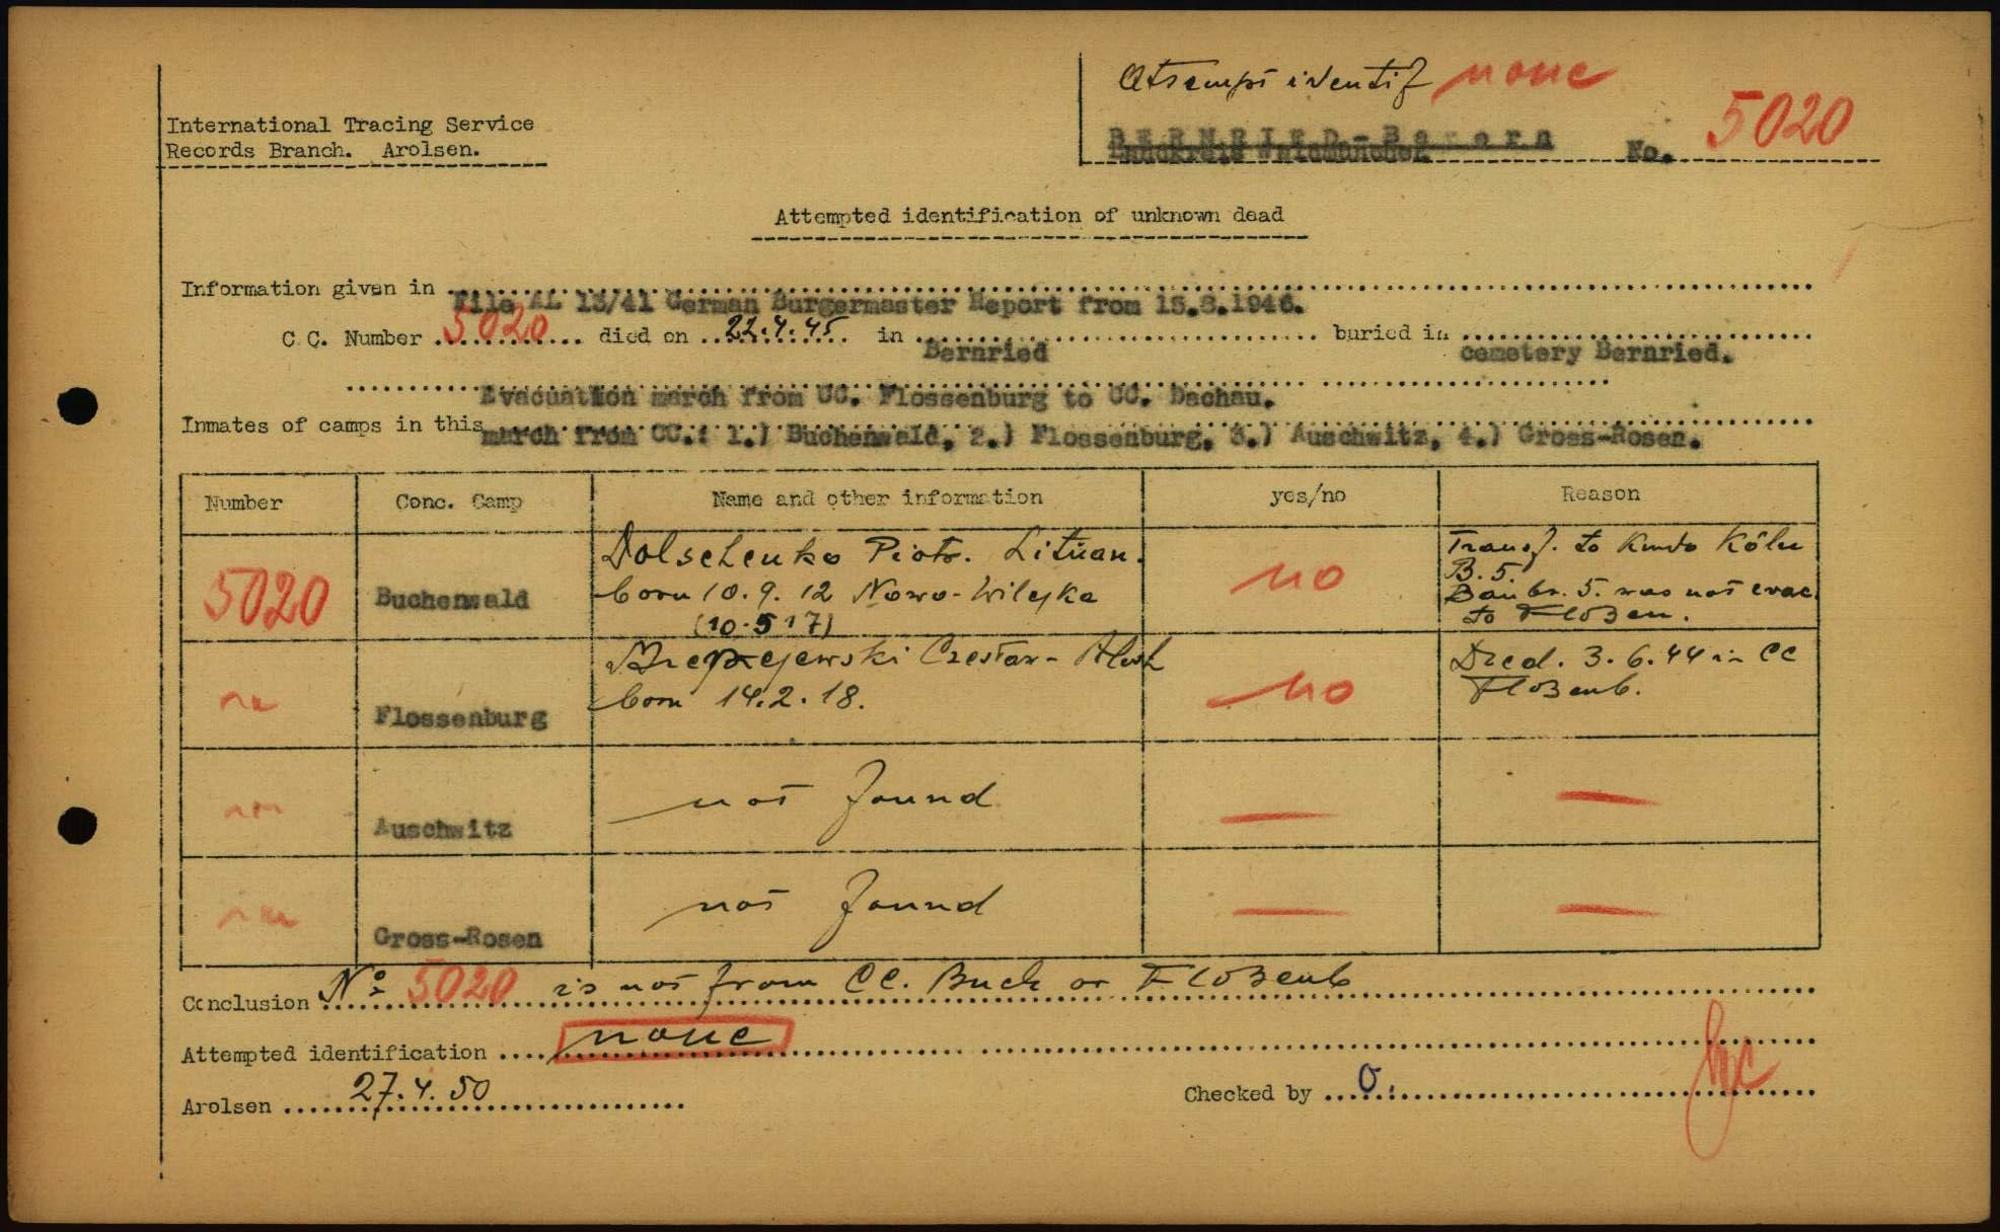 Attempt identif none
International Tracing Service
Records Branch. Arolsen.
BERNRIED - Bayern
Landkreis Waldmünchen
No. 5020
Attempted identification of unknown dead
Information given in File AL 13/41 German Burgermaster Report from 15.8.1946.
C.C. Number 5020 died on 22.4.45 in Bernried buried in cemetery Bernried.
Evacuation march from CC. Flossenburg to CC. Dachau.
Inmates of camps in this march from CC.: 1.) Buchenwald, 2.) Flossenburg, 3.) Auschwitz, 4.) Gross-Rosen.
Number Conc. Camp Name and other information yes/no Reason
5020 Buchenwald Dolschenko Piotr. Lituan. no Transf. to Kmdo Köln
born 10.9.12 Nowo-Wilejka B.5.
(10.5 17) Baubr. 5. was not evac.
to Floßen.
Flossenburg Czesław no Died. 3.6.44 in CC
born 14.2.18. Floßenb.
Auschwitz not found —
Gross-Rosen not found —
Conclusion No 5020 is not from CC. Buch or Floßenb
Attempted identification none
Arolsen 27.4.50 Checked by O.